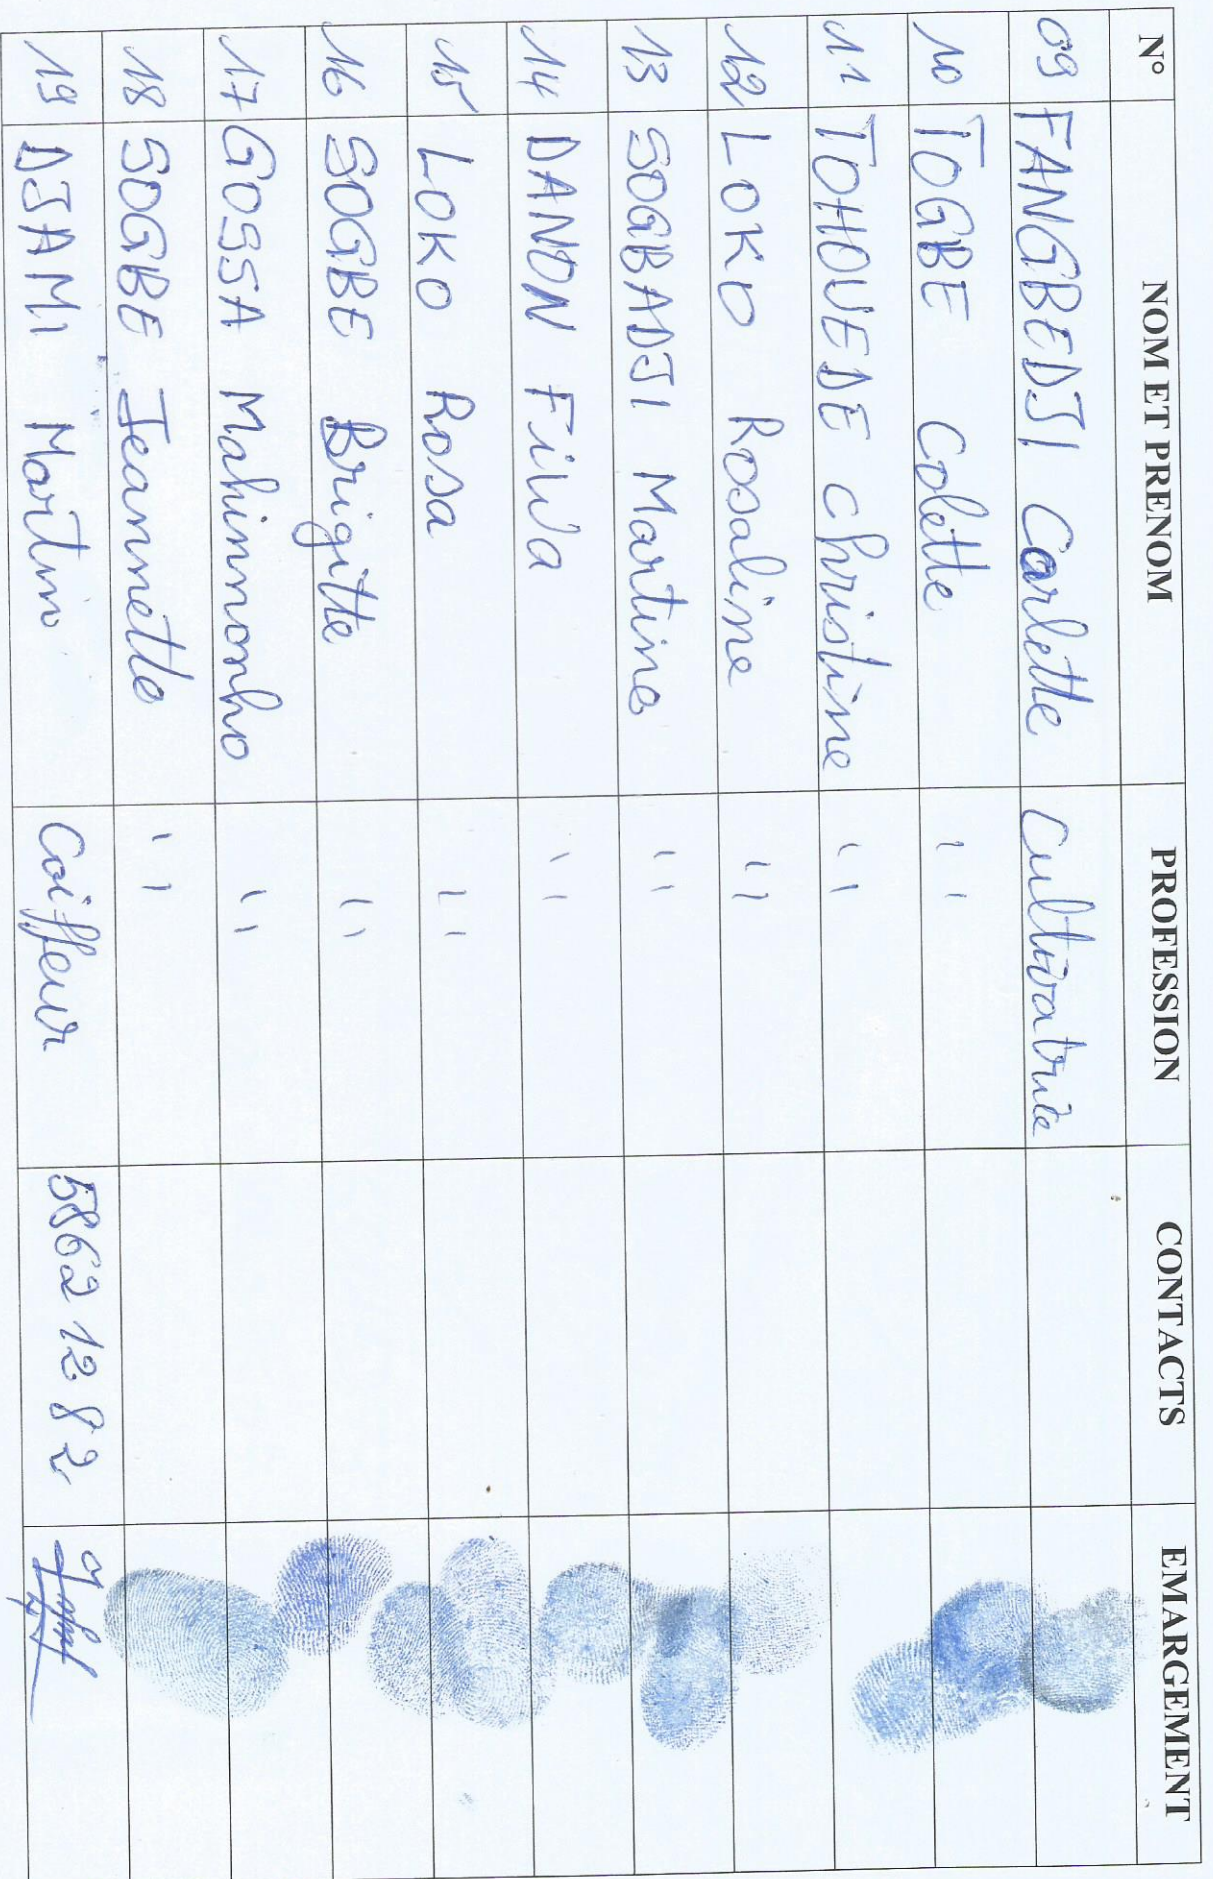 N° NOM ET PRENOM PROFESSION CONTACTS EMARGEMENT
09 FANGBEDJI Carlette Cultivatrice
10 TOGBE Colette " "
11 TOHOUEDE Christine " "
12 LOKO Rosaline " "
13 SOGBADJI Martine " "
14 DANON Fifa " "
15 LOKO Rosa " "
16 SOGBE Brigitte " "
17 GOSSA Mahinnonho " "
18 SOGBE Jeannette " "
19 DJAMI Martin Coiffeur 5862 12 82